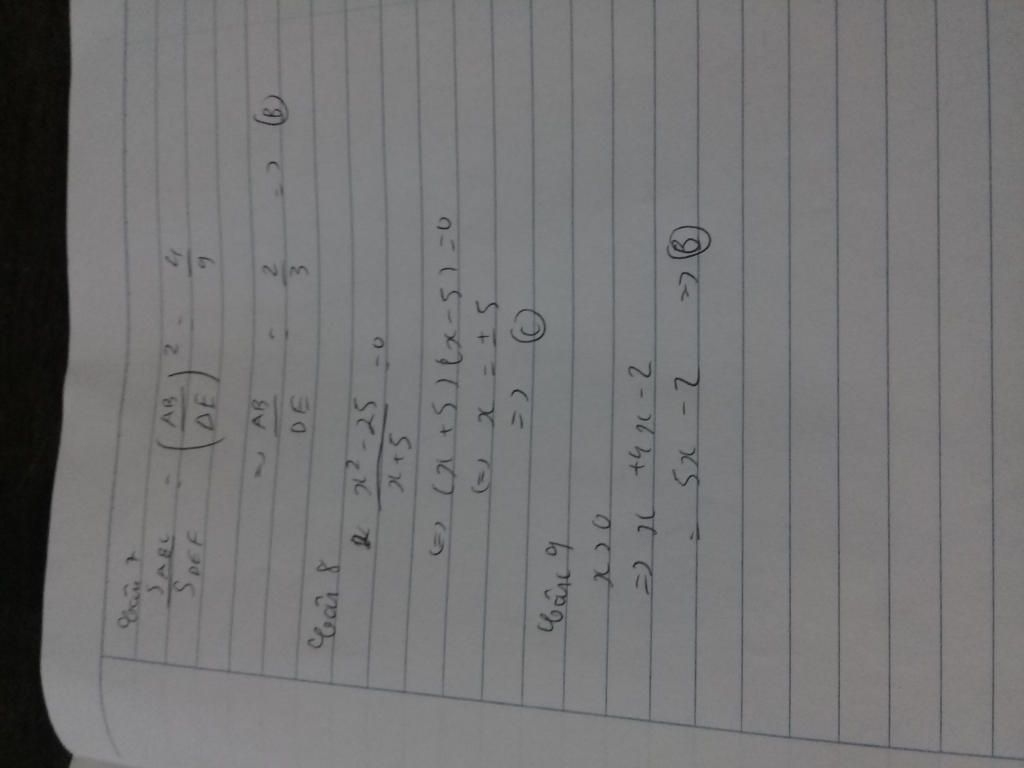 Câu 7
S ABC / S DEF = (AB / DE)² = 4 / 9
=> AB / DE = 2 / 3 => (B)
Câu 8
x² - 25 / x + 5 = 0
(=) (x + 5) (x - 5) = 0
(=) x = ± 5
=> (C)
Câu 9
x > 0
=> x + 4x - 2
= 5x - 2 => (B)